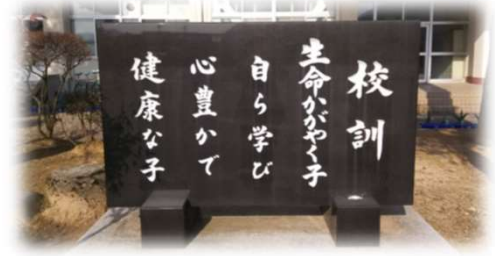 校訓
生命かがやく子
自ら学び
心豊かで
健康な子